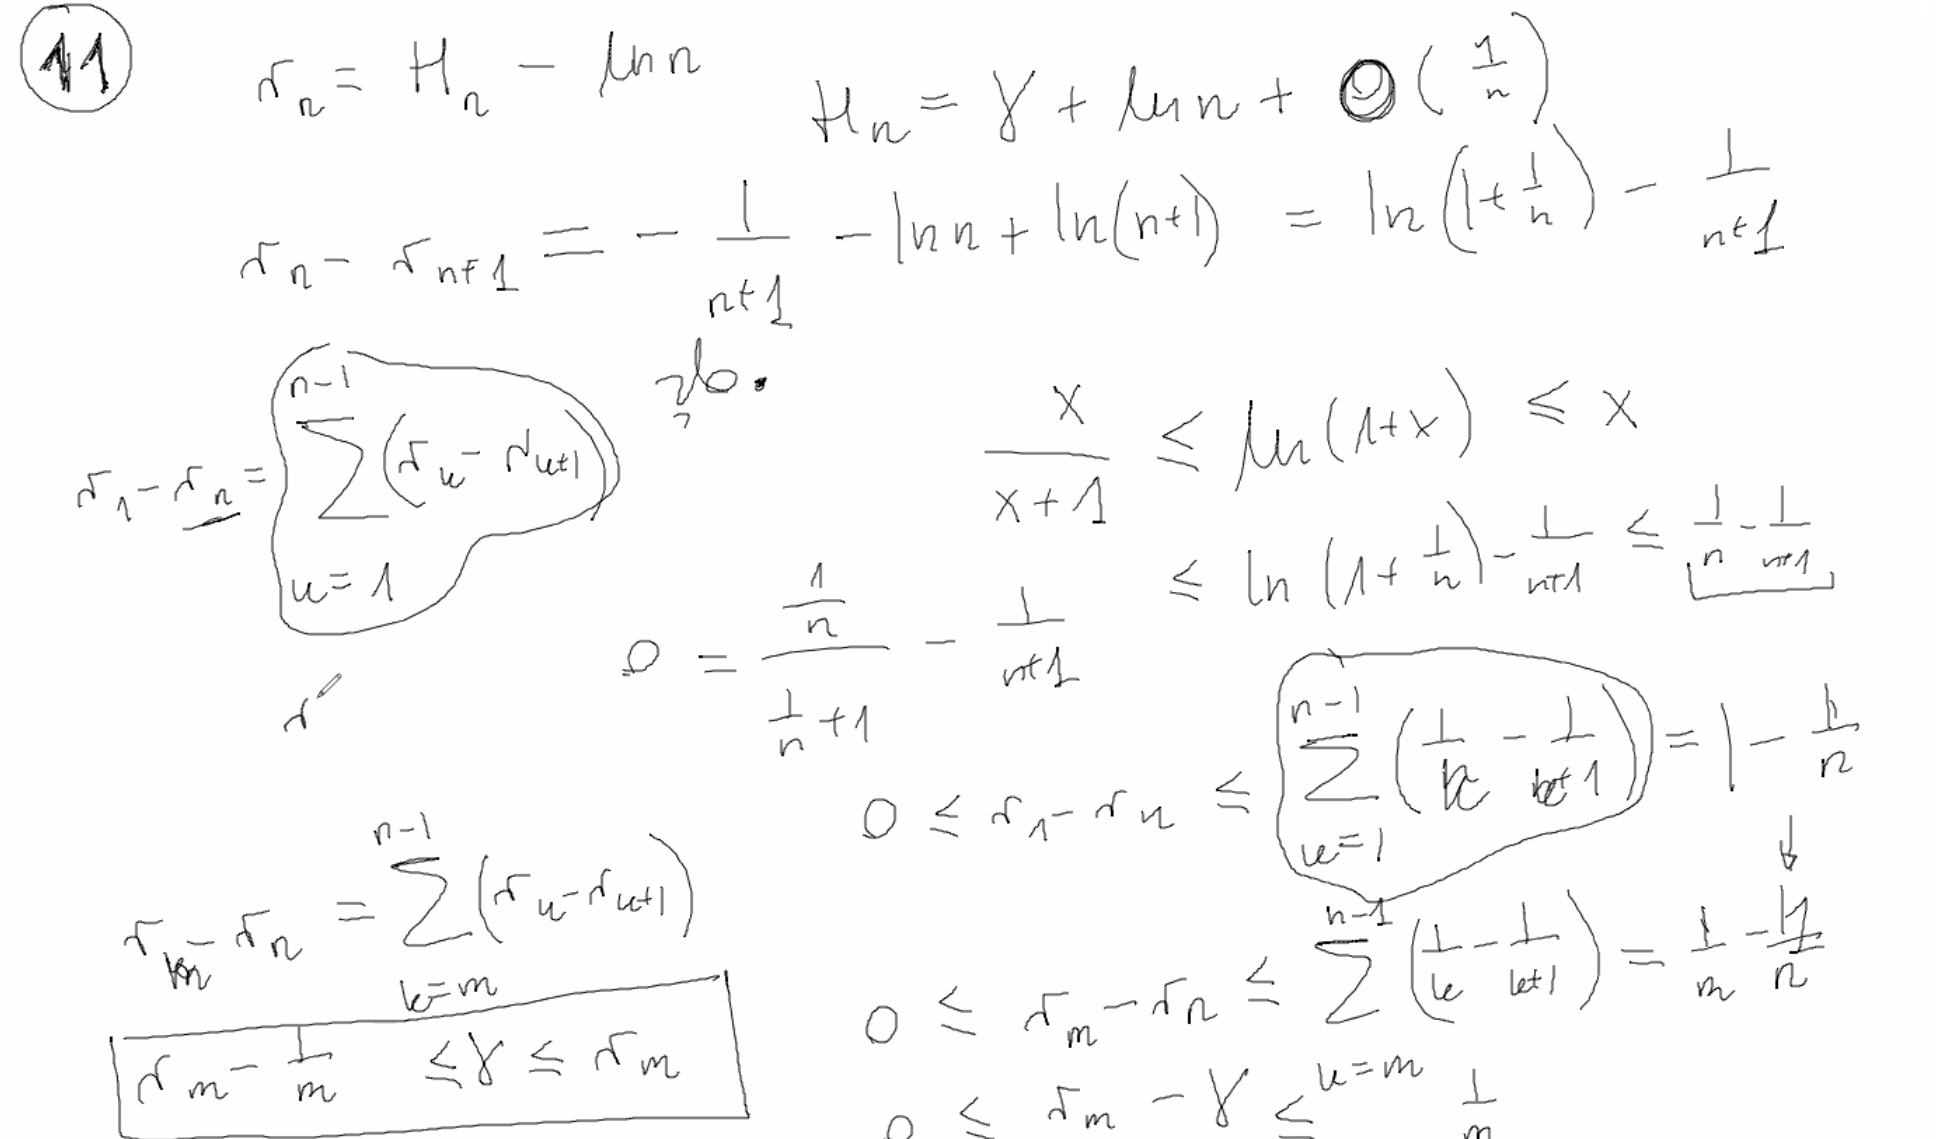 11
r_n = H_n - ln n
H_n = γ + ln n + O(1/n)
r_n - r_{n+1} = - 1/(n+1) - ln n + ln(n+1) = ln(1 + 1/n) - 1/(n+1)
zb.
r_1 - r_n = ∑_{k=1}^{n-1} (r_k - r_{k+1})
x/(x+1) ≤ ln(1+x) ≤ x
0 = (1/n)/(1/n + 1) - 1/(n+1) ≤ ln(1 + 1/n) - 1/(n+1) ≤ 1/n - 1/(n+1)
r
0 ≤ r_1 - r_n ≤ ∑_{k=1}^{n-1} (1/k - 1/(k+1)) = 1 - 1/n
↓
r_m - r_n = ∑_{k=m}^{n-1} (r_k - r_{k+1})
0 ≤ r_m - r_n ≤ ∑_{k=m}^{n-1} (1/k - 1/(k+1)) = 1/m - 1/n
r_m - 1/m ≤ γ ≤ r_m
0 ≤ r_m - γ ≤ 1/m